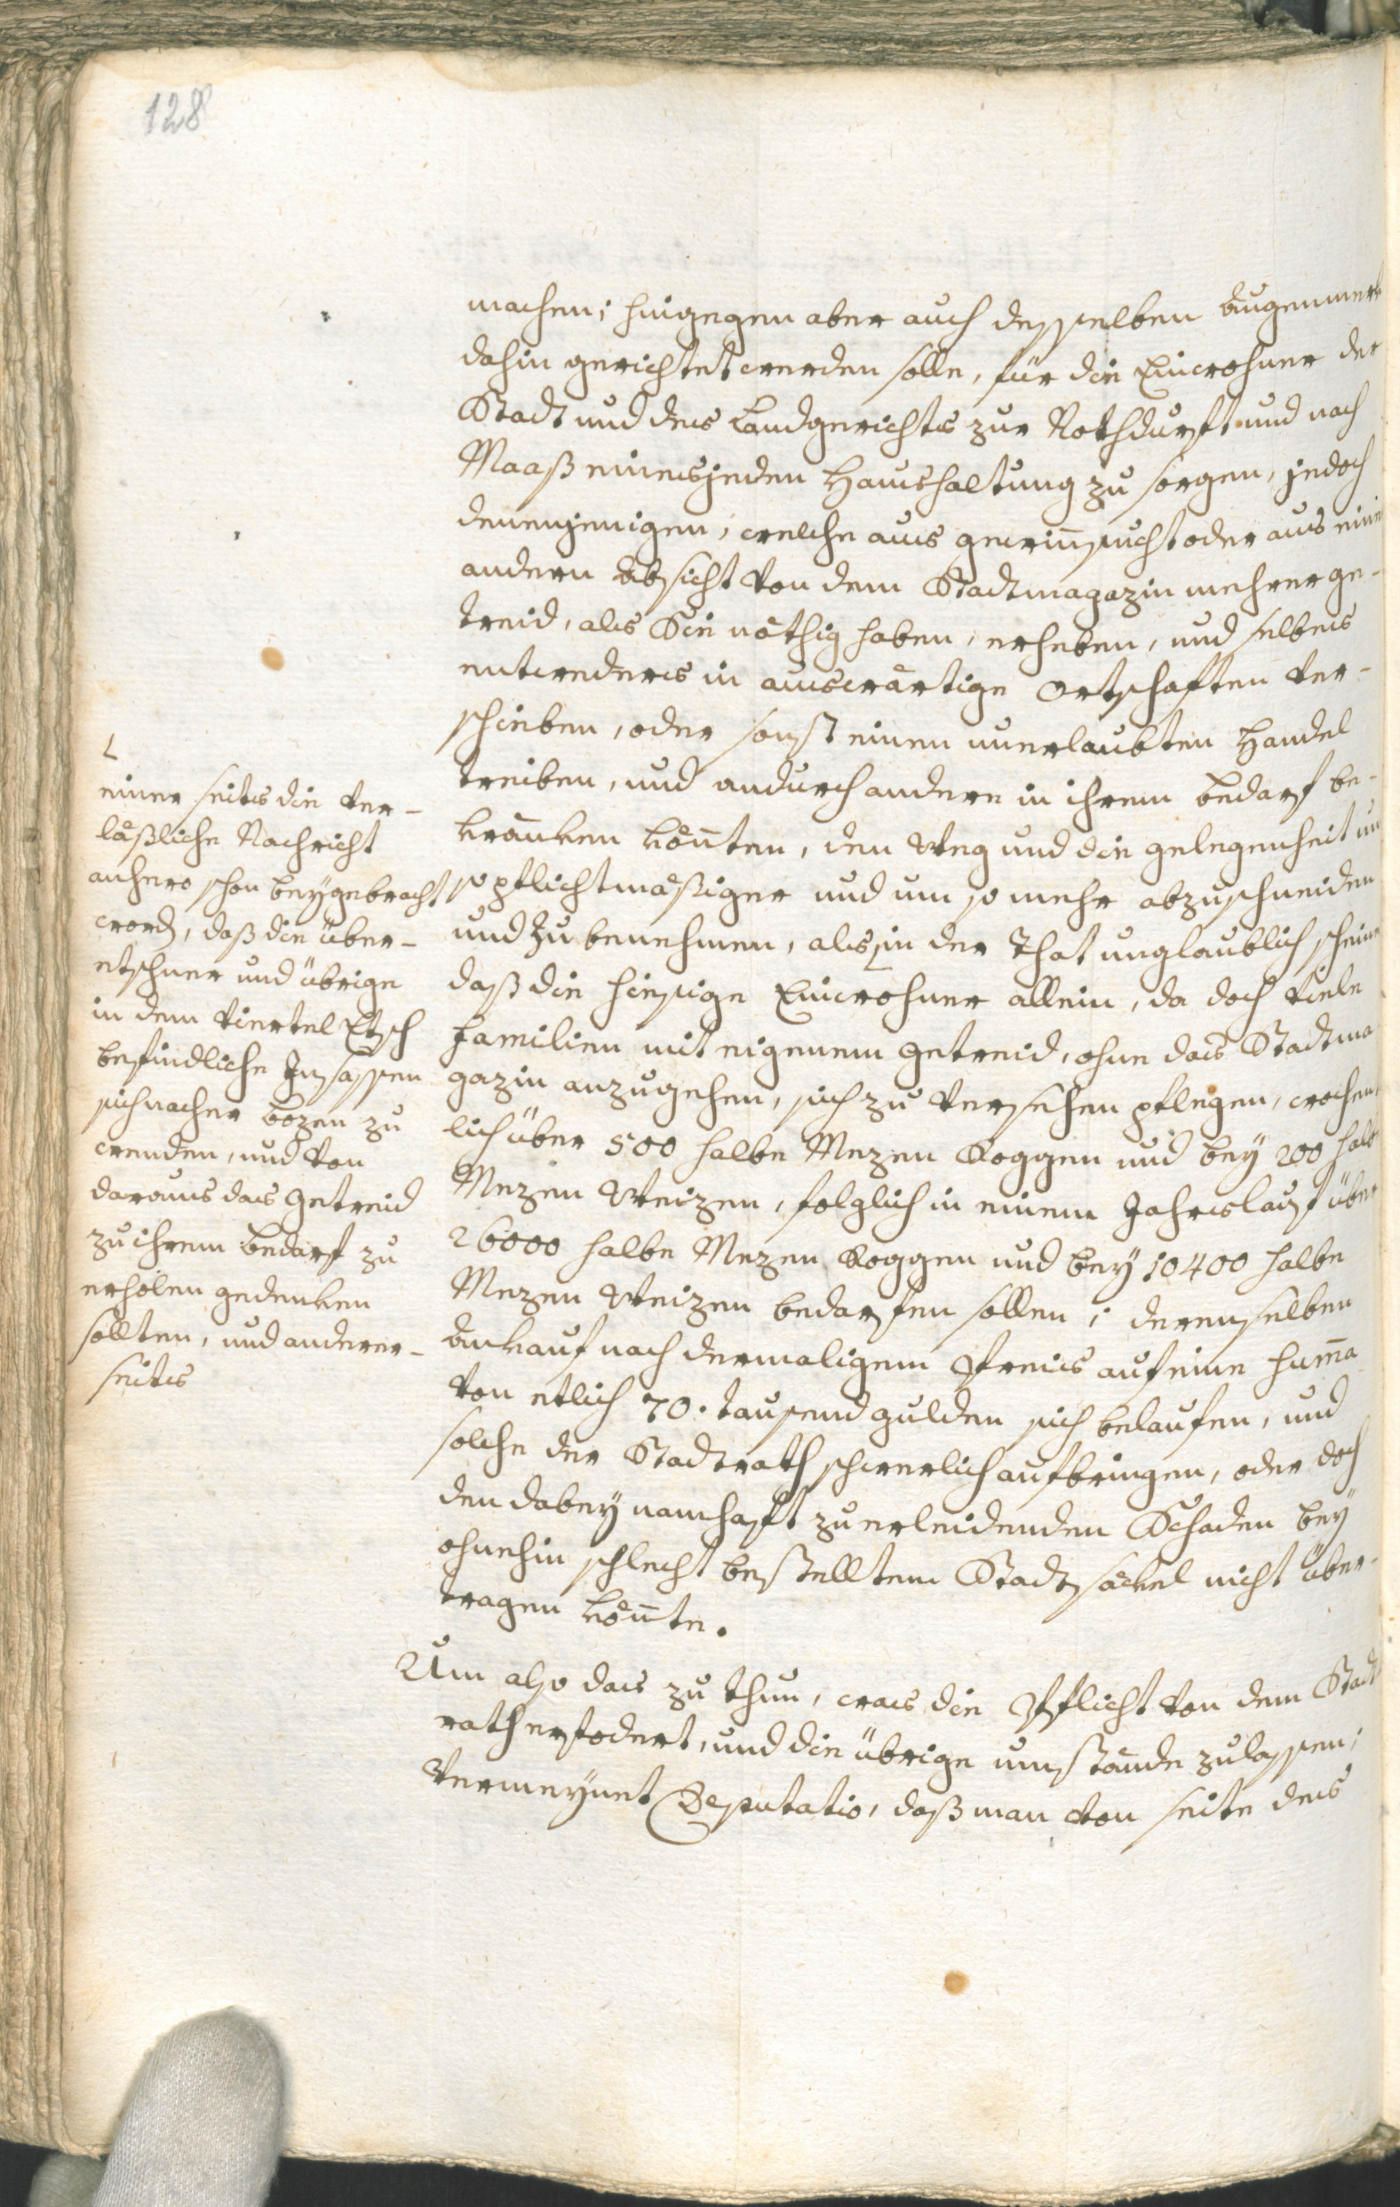 128
machen; hingegen aber auch desselben Augenmerk
dahin gerichtet werden solle, für die Einwohner der
Stadt und des Landgerichts zur Nothdurft und nach
Maaß eines jeden Haushaltung zu sorgen, jedoch
denenjenigen, welche aus gewinnsucht oder aus einer
andern Absicht von dem Stadtmagazin mehrer ge-
treid, als Sie nöthig haben, erheben, und selbes
entweders in auswärtige Ortschaften ver-
schieben, oder sonst einen unerlaubten Handel
treiben, und andurch andere in ihrem bedarf be-
kränken könnten, den Weg und die gelegenheit um
so pflichtmäßiger und um so mehr abzuschneiden
und zu benehmen, als in der That unglaublich scheine
daß die hiesige Einwohner allein, da doch viele
Familien mit eigenem getreid, ohne das Stadtma
gazin anzugehen, sich zu versehen pflegen, wochent
lich über 500 halbe Mezen Roggen und bey 200 halb
Mezen Weizen, folglich in einem Jahreslauf über
26000 halbe Mezen Roggen und bey 10400 halbe
Mezen Weizen bedarfen sollen; derenselben
Ankauf nach dermaligem Preis auf eine Sum̄a
von etlich 70. tausend gulden sich belaufen, und
solche der Stadtrath schwerlich aufbringen, oder doch
den dabey namhaft zu erleidenden Schaden bey
ohnehin schlecht bestelltem Stadtsäckel nicht über-
tragen könnte.
Um also das zu thun, was die Pflicht von dem Stadt
rath erfodert, und die übrige umstände zulassen;
vermeynet Deputatio, daß man von seite des
einer seits die ver-
läßliche Nachricht
anhero schon beygebracht
word, daß die über-
etscher und übrige
in dem viertel Etsch
befindliche Insassen
sich nacher bozen zu
wenden, und von
daraus das getreid
zu ihrem bedarf zu
erholen gedenken
sollten, und anderer-
seits